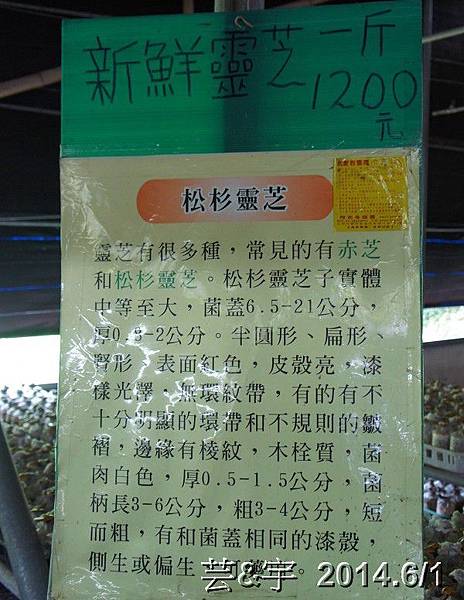 新鮮靈芝一斤
1200
元
松杉靈芝
靈芝有很多種，常見的有赤芝
和松杉靈芝。松杉靈芝子實體
中等至大，菌蓋6.5-21公分，
厚0.8-2公分。半圓形、扁形、
腎形，表面紅色，皮殼亮，漆
樣光澤，無環紋帶，有的有不
十分明顯的環帶和不規則的皺
褶，邊緣有棱紋，木栓質，菌
肉白色，厚0.5-1.5公分，菌
柄長3-6公分，粗3-4公分，短
而粗，有和菌蓋相同的漆殼，
側生或偏生
芸&宇 2014.6/1